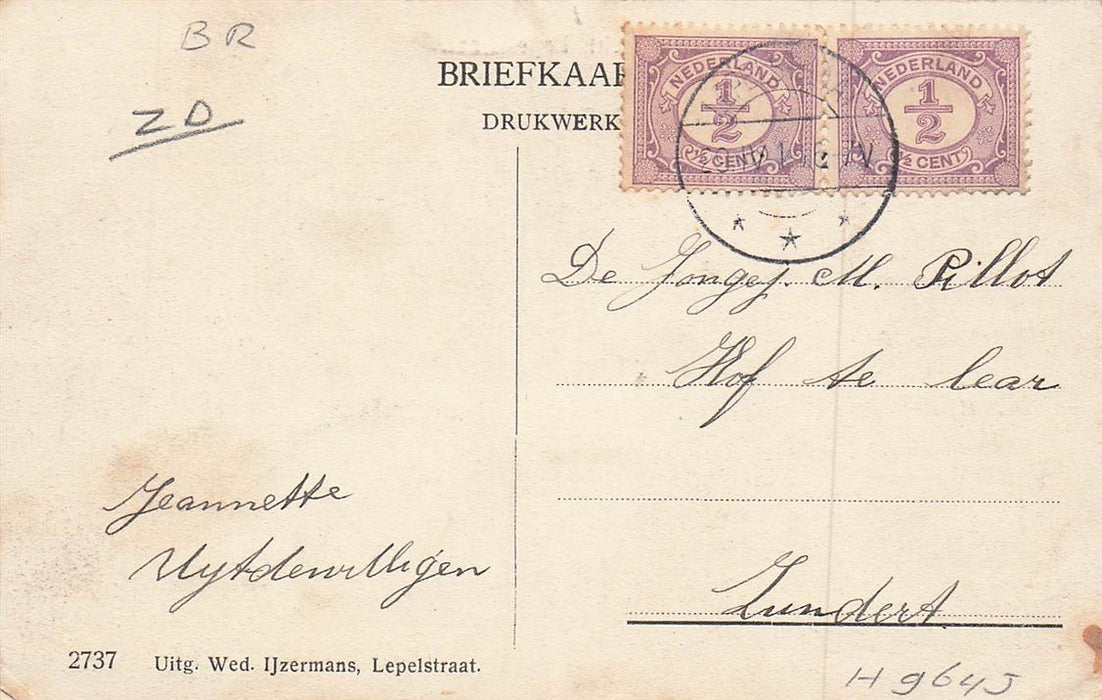 BR
ZD
BRIEFKAA
DRUKWERK
NEDERLAND
1/2
½ CENT
NEDERLAND
1/2
½ CENT
De Jongej. M. Pillot
Hof te lear
Zundert
Jeannette
Uytdewilligen
2737 Uitg. Wed. IJzermans, Lepelstraat.
H 9645